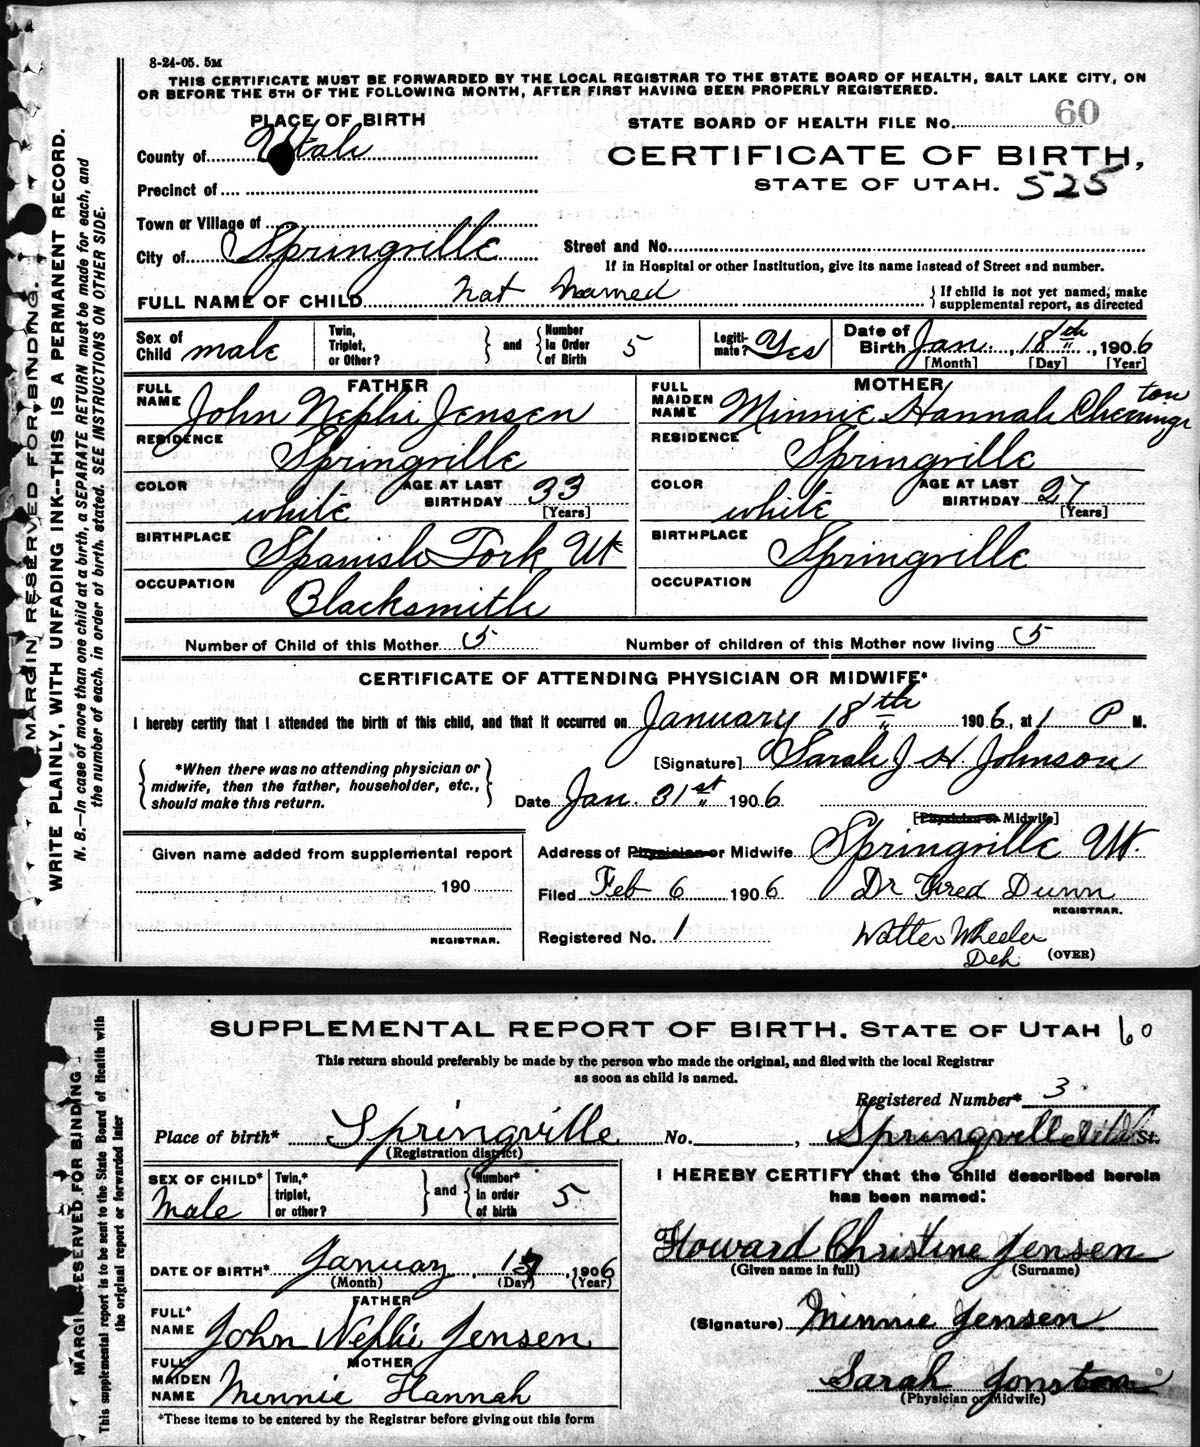 8-24-05. 5M
THIS CERTIFICATE MUST BE FORWARDED BY THE LOCAL REGISTRAR TO THE STATE BOARD OF HEALTH, SALT LAKE CITY, ON
OR BEFORE THE 5TH OF THE FOLLOWING MONTH, AFTER FIRST HAVING BEEN PROPERLY REGISTERED.
PLACE OF BIRTH
STATE BOARD OF HEALTH FILE No. 60
County of Utah
CERTIFICATE OF BIRTH,
STATE OF UTAH. 525
Precinct of
Town or Village of
City of Springville
Street and No.
If in Hospital or other Institution, give its name instead of Street and number.
FULL NAME OF CHILD Not Named
{ If child is not yet named, make
supplemental report, as directed
Sex of Child male
Twin, Triplet, or Other? } and { Number in Order of Birth 5
Legiti-mate? Yes
Date of Birth Jan. 18th, 1906
[Month] [Day] [Year]
FATHER
FULL NAME John Nephi Jensen
RESIDENCE Springville
COLOR white
AGE AT LAST BIRTHDAY 33
[Years]
BIRTHPLACE Spanish Fork Ut
OCCUPATION Blacksmith
MOTHER
FULL MAIDEN NAME Minnie Hannah
RESIDENCE Springville
COLOR white
AGE AT LAST BIRTHDAY 27
[Years]
BIRTHPLACE Springville
OCCUPATION
Number of Child of this Mother 5
Number of children of this Mother now living 5
CERTIFICATE OF ATTENDING PHYSICIAN OR MIDWIFE*
I hereby certify that I attended the birth of this child, and that it occurred on January 18th 1906, at 1 P M.
{ *When there was no attending physician or
midwife, then the father, householder, etc.,
should make this return. }
[Signature] Sarah J. H. Johnson
Date Jan. 31st 1906
[Physician or Midwife]
Address of Physician or Midwife Springville Ut.
Filed Feb 6 1906 Dr Fred Dunn
REGISTRAR.
Registered No. 1 Walter Wheeler
Dep. (OVER)
Given name added from supplemental report
190
REGISTRAR.
MARGIN RESERVED FOR BINDING.
WRITE PLAINLY, WITH UNFADING INK--THIS IS A PERMANENT RECORD.
N. B.—In case of more than one child at a birth, a SEPARATE RETURN must be made for each, and
the number of each, in order of birth, stated. SEE INSTRUCTIONS ON OTHER SIDE.
SUPPLEMENTAL REPORT OF BIRTH, STATE OF UTAH 60
This return should preferably be made by the person who made the original, and filed with the local Registrar
as soon as child is named.
Registered Number* 3
Place of birth* Springville No. , Springville St.
(Registration district)
SEX OF CHILD* Male
Twin,* triplet, or other? } and { Number* in order of birth 5
I HEREBY CERTIFY that the child described herein
has been named:
Howard Christine Jensen
(Given name in full) (Surname)
DATE OF BIRTH* January , 1906
(Month) (Day) (Year)
FATHER
FULL* NAME John Nephi Jensen
(Signature) Minnie Jensen
MOTHER
FULL* MAIDEN NAME Minnie Hannah
Sarah
(Physician or Midwife)
*These items to be entered by the Registrar before giving out this form
MARGIN RESERVED FOR BINDING
This supplemental report is to be sent to the State Board of Health with
the original report or forwarded later